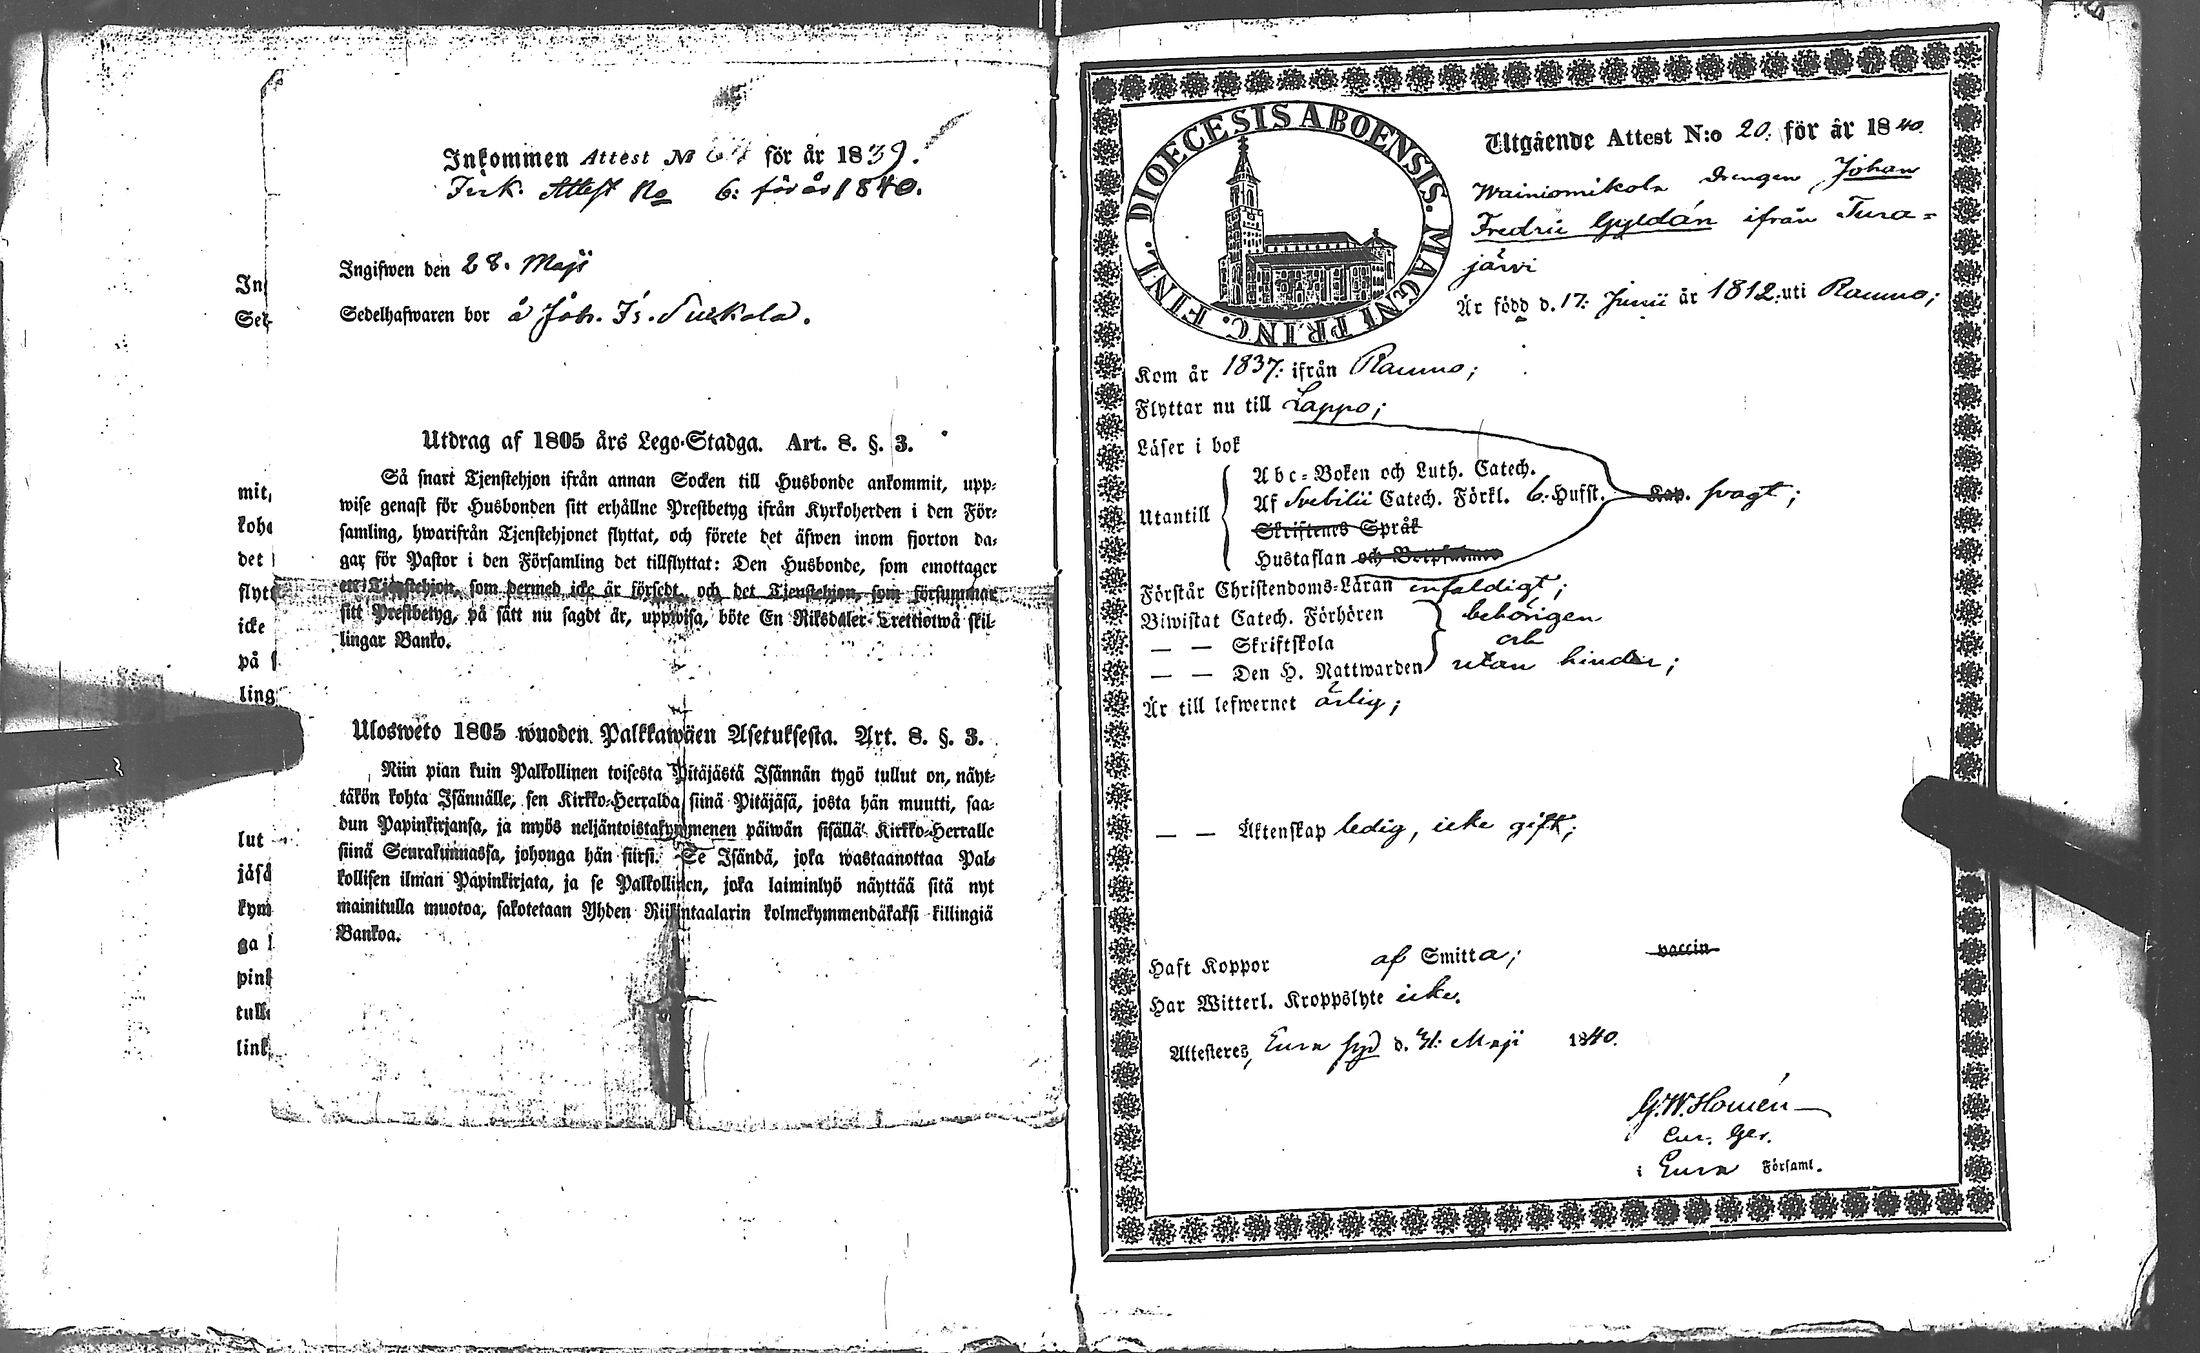 Inkommen Attest No 64 för år 1839.
Ink. Attest No 6: för år 1840.
Ingifwen den 28. Maji
Sedelhafwaren bor å Joh. Is.
In
Sed
Utdrag af 1805 års Lego-Stadga. Art. 8. §. 3.
Så snart Tjenstehjon ifrån annan Socken till Husbonde ankommit, upp-
wise genast för Husbonden sitt erhållne Prestbetyg ifrån Kyrkoherden i den För-
samling, hwarifrån Tjenstehjonet flyttat, och förete det äfwen inom fjorton da-
gar för Pastor i den Församling det tillflyttat: Den Husbonde, som emottager
ett Tjenstehjon, som dermed icke är försedt, och det Tjenstehjon, som försummar
sitt Prestbetyg, på sätt nu sagdt är, uppwisa, böte En Riksdaler Trettiotwå skil-
lingar Banko.
mit,
koh
det
flytt
icke
på s
ling
Ulosweto 1805 wuoden Palkkawäen Asetuksesta. Art. 8. §. 3.
Niin pian kuin Palkollinen toisesta Pitäjästä Isännän tygö tullut on, näyt-
täkön kohta Isännälle, sen Kirkko-Herralda siinä Pitäjäsä, josta hän muutti, saa-
dun Papinkirjansa, ja myös neljäntoistakymmenen päiwän sisällä Kirkko-Herralle
siinä Seurakunnassa, johonga hän siirsi. Se Isändä, joka wastaanottaa Pal-
kollisen ilman Papinkirjata, ja se Palkollinen, joka laiminlyö näyttää sitä nyt
mainitulla muotoa, sakotetaan Yhden Riikintaalarin kolmekymmendäkaksi killingiä
Bankoa.
lut
jäsä
kym
ga
pink
tull
link
DIOECESIS ABOENSIS. MAGNI PRINC. FINL.
Utgående Attest N:o 20. för år 1840.
Wainiomikola Drengen Johan
Fredric Gyldán ifrån Tura=
järvi
Är född d. 17: Junii år 1812. uti Raumo;
Kom år 1837: ifrån Raumo;
Flyttar nu till Lappo;
Läser i bok
Utantill
Abc-Boken och Luth. Catech.
Af Svebilii Catech. Förkl. 6: Hufst. Kap. svagt;
Skriftenes Språk
Hustaflan och Botpsalmer
Förstår Christendoms-Läran enfaldigt;
Biwistat Catech. Förhören behörigen
— — Skriftskola och
— — Den H. Nattwarden utan hinder;
Är till lefwernet ärlig;
— — Äktenskap ledig, icke gift;
Haft Koppor af Smitta; vaccin
Har Witterl. Kroppslyte icke.
Attesteres, Eura d. 31: Maji 1840.
G. W. Homén
Cur. Ger.
i Eura Församl.